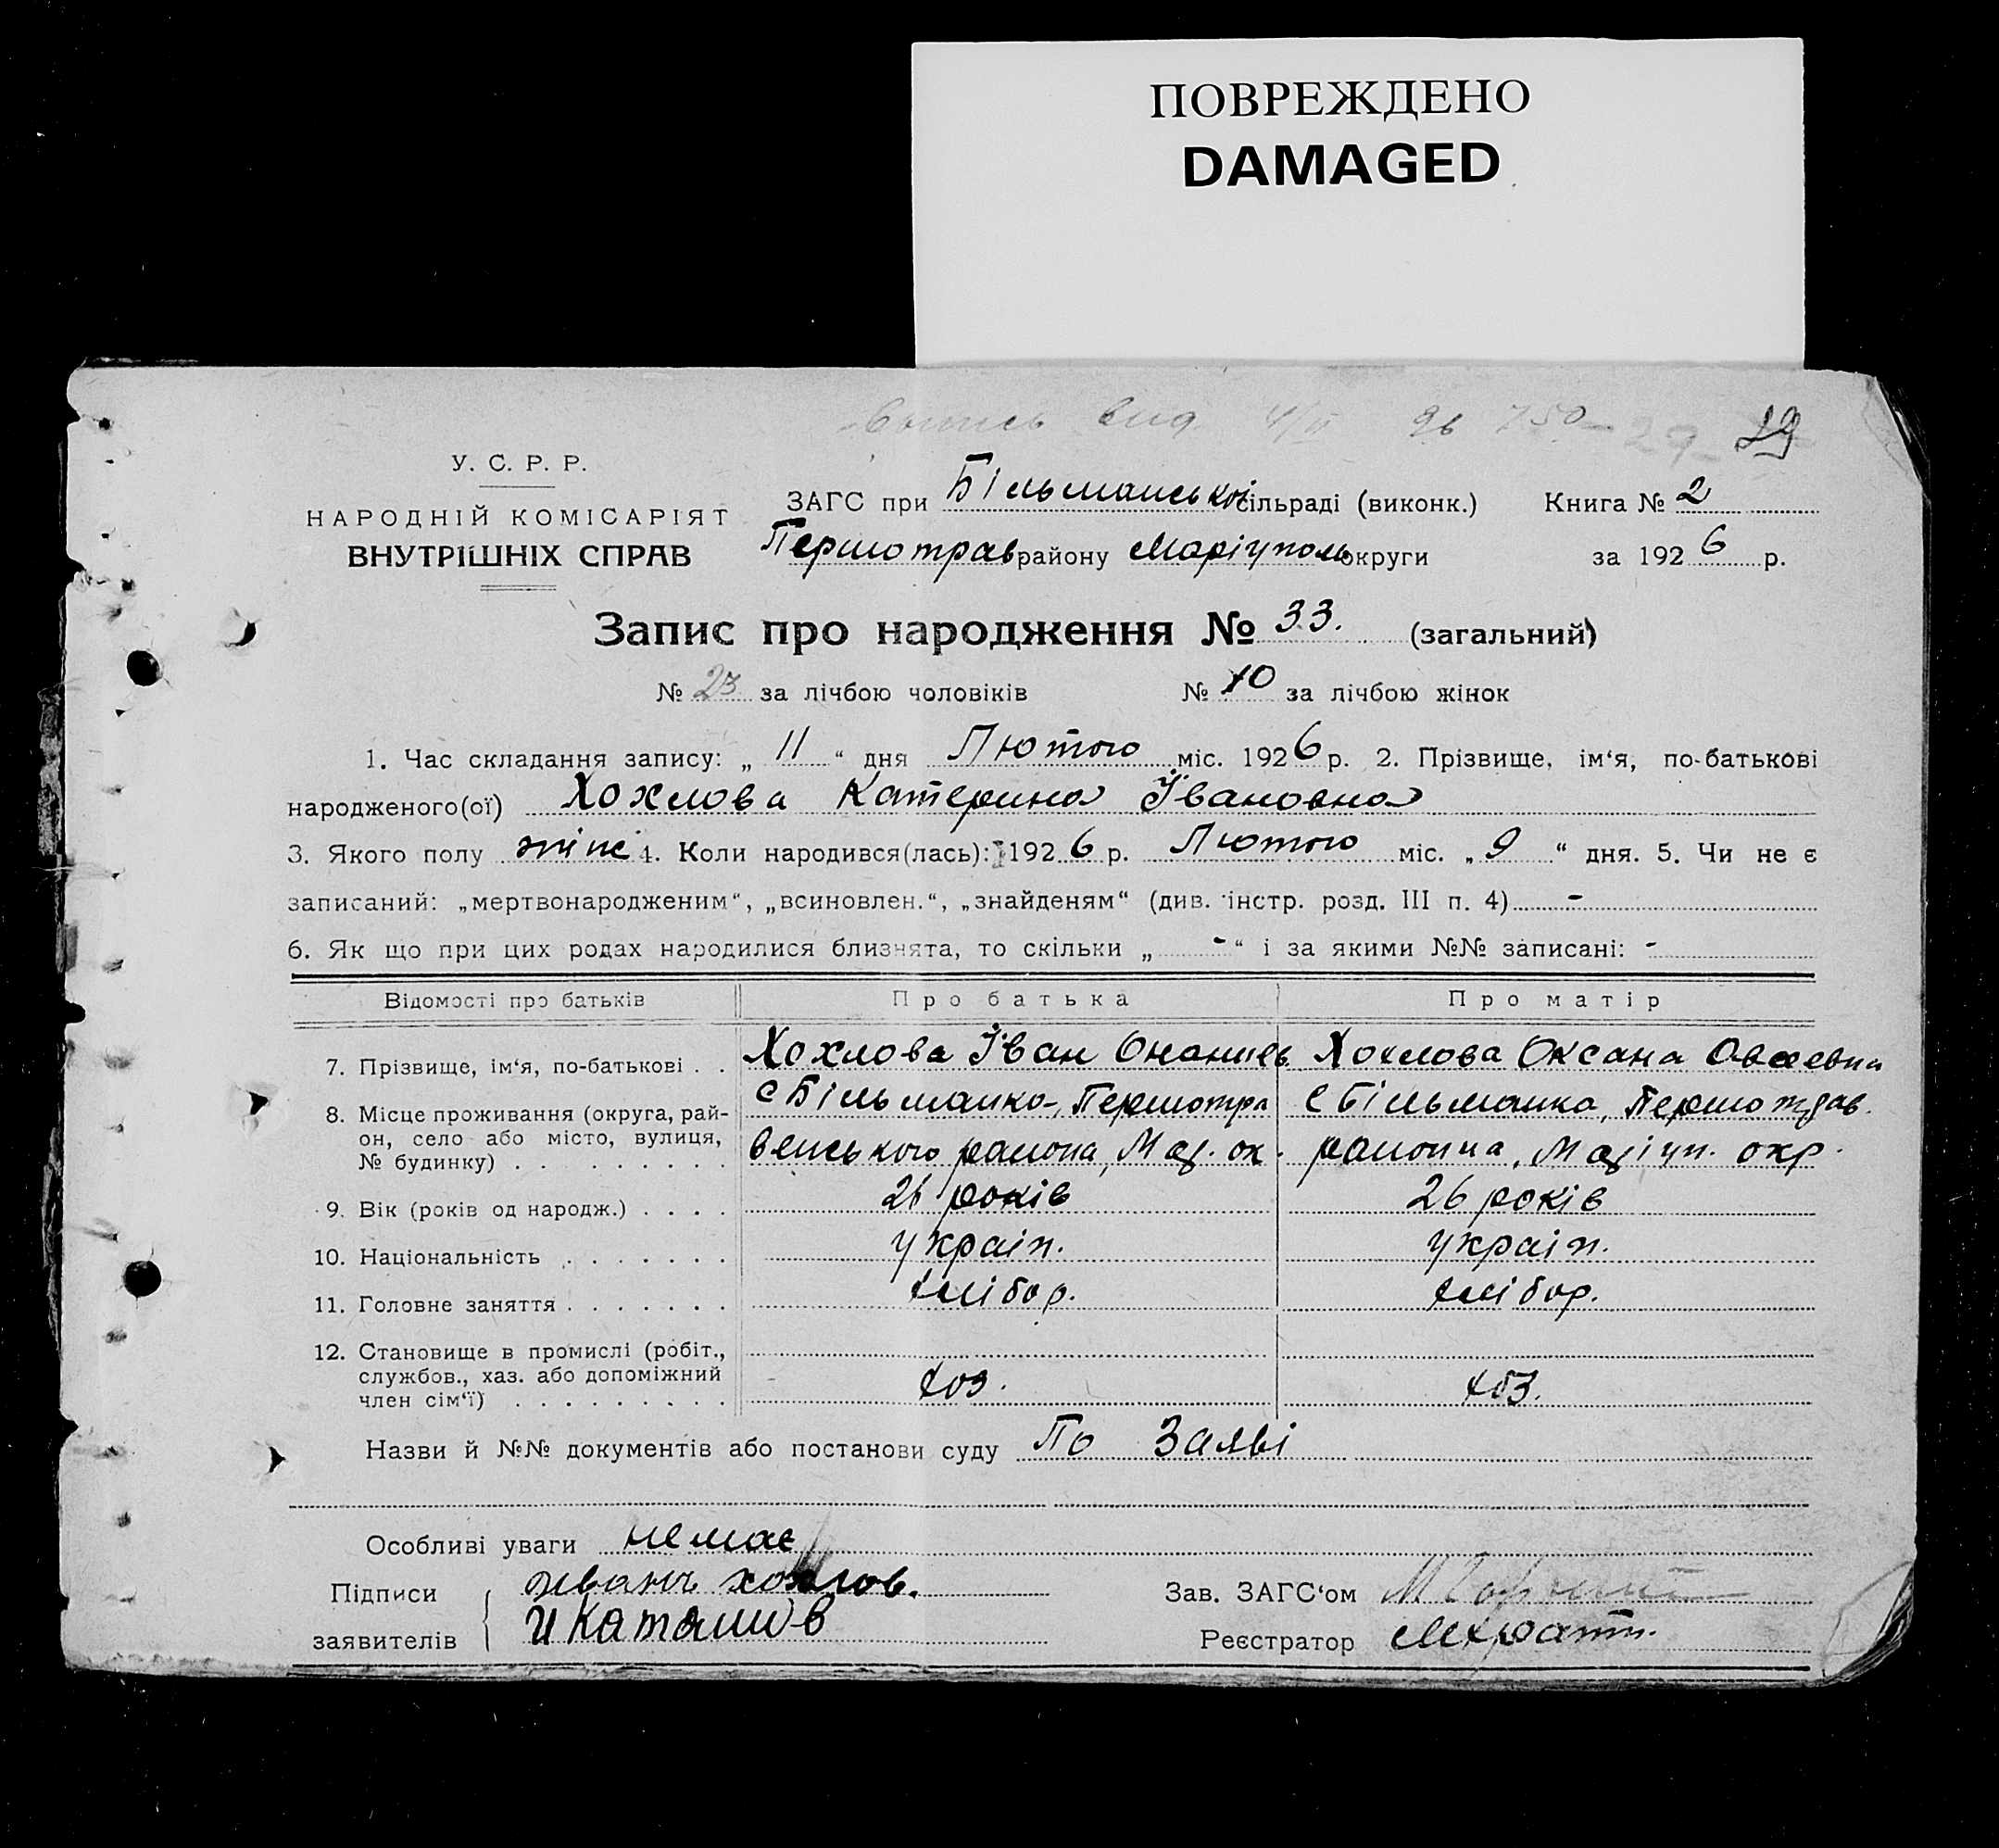 ПОВРЕЖДЕНО
DAMAGED
29
У. С. Р. Р.
НАРОДНІЙ КОМІСАРІЯТ
ВНУТРІШНІХ СПРАВ
ЗАГС при Більманській сільраді (виконк.) Книга № 2
Першотрав району Маріуполь округи за 1926 р.
Запис про народження № 33. (загальний)
№ 23 за лічбою чоловіків № 10 за лічбою жінок
1. Час складання запису: „ 11 “ дня Лютого міс. 1926 р. 2. Прізвище, ім‘я, по-батькові
народженого(ої) Хохлова Катерина Івановна
3. Якого полу жіно 4. Коли народився(лась): 1926 р. Лютого міс. „ 9 “ дня. 5. Чи не є
записаний: „мертвонародженим“, „всиновлен.“, „знайденям“ (див. інстр. розд. III п. 4) -
6. Як що при цих родах народилися близнята, то скільки „ - “ і за якими №№ записані: -
Відомості про батьків Про батька Про матір
7. Прізвище, ім‘я, по-батькові . . Хохлова Іван Онаниев Хохлова Оксана
8. Місце проживання (округа, рай- с Більманка, Першотра с Більманка, Першотрав.
он, село або місто, вулиця, венського района, Мар. ок. района, Маріуп. окр.
№ будинку) . . . . . . . . .
9. Вік (років од народж.) . . . . 26 років 26 років
10. Національність . . . . . . . україн. україн.
11. Головне заняття . . . . . . . хлібор. хлібор.
12. Становище в промислі (робіт.,
службов., хаз. або допоміжний хоз. хоз.
член сім‘ї) . . . . . . . . .
Назви й №№ документів або постанови суду По Заяві
Особливі уваги немає
Підписи Иванъ хохлов.
заявителів И Каталшов
Зав. ЗАГС‘ом
Реєстратор